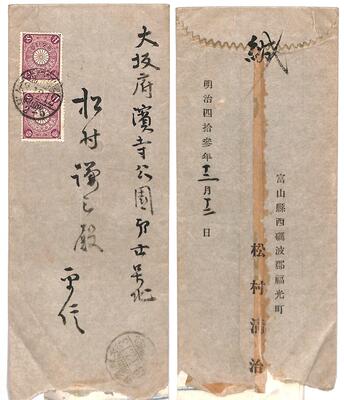 大坂府濱寺公園第廿号地
松村謙三殿
平信
緘
明治四拾参年十二月十二日
富山縣西礪波郡福光町
松村清治